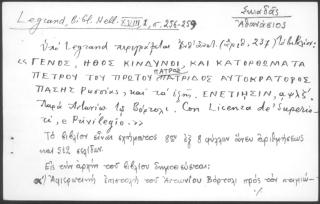 Legrand, Bibl. Hell. XVIII, 1, σ. 256-259
Σκιαδᾶς
Ἀθανάσιος
Ὑπὸ Legrand περιγράφεται
«ΓΕΝΟΣ, ΗΘΟΣ ΚΙΝΔΥΝΟΙ, ΚΑΙ ΚΑΤΟΡΘΩΜΑΤΑ
ΠΕΤΡΟΥ ΤΟΥ ΠΡΩΤΟΥ ΠΑΤΡΟΣ ΠΑΤΡΙΔΟΣ ΑΥΤΟΚΡΑΤΟΡΟΣ
ΠΑΣΗΣ Ρωσσίας, καὶ τὰ ἑξῆς. ΕΝΕΤΙΗΣΙΝ, αψλζ΄.
Παρὰ Ἀντωνίῳ τῷ Βόρτολι. Con Licenza de' Superio-
ri, e Privilegio.»
Τὸ βιβλίον εἶναι σχήματος 8ον ἐξ 8 φύλλων ἄνευ ἀριθμήσεως
καὶ 512 σελίδων.
Εἰς τὴν ἀρχὴν τοῦ βιβλίου δημοσιεύεται:
α) Ἀφιερωτικὴ ἐπιστολὴ τοῦ Ἀντωνίου Βόρτολι πρὸς τὸν